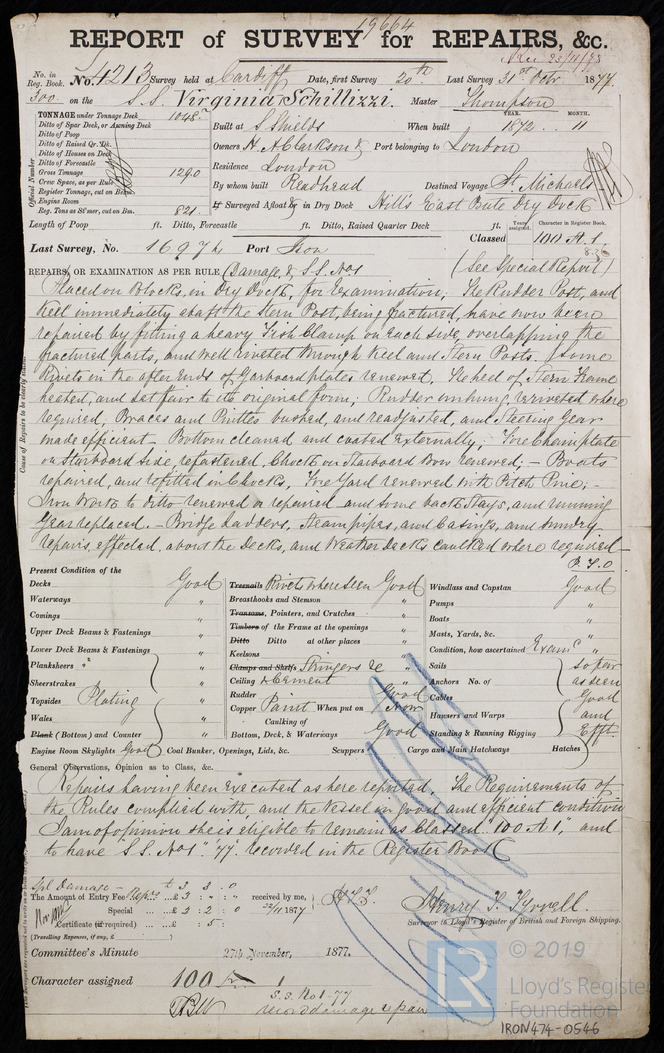 19664
REPORT of SURVEY for REPAIRS, &c.
No. in Reg. Book. No. 4213 Survey held at Cardiff Date, first Survey 20th Last Survey 31st Octr. 1877.
300 on the S.S. Virginia Schilizzi. Master Thompson
TONNAGE under Tonnage Deck 1048
Ditto of Spar Deck, or Awning Deck
Ditto of Poop
Ditto of Raised Qr. Dk.
Ditto of Houses on Deck
Ditto of Forecastle
Gross Tonnage 1290
Crew Space, as per Rule
Register Tonnage, cut on Beam
Engine Room
Reg. Tons as St'mer, cut on Bm. 821.
Official Number
Built at S. Shields When built YEAR. 1872 MONTH. 11
Owners H A Clarkson & Port belonging to London
Residence London
By whom built Readhead Destined Voyage St Michaels
If Surveyed Afloat or in Dry Dock Hill's East Bute Dry Dock
Length of Poop ft. Ditto, Forecastle ft. Ditto, Raised Quarter Deck ft.
Years assigned. Character in Register Book.
Classed 100 A.1.
Last Survey, No. 16974 Port Iron
(See Special Report)
REPAIRS, OR EXAMINATION AS PER RULE (Damage, & S.S. No 1
Placed on Blocks, in Dry Dock, for Examination, The Rudder Post, and
Keel immediately abaft the Stern Post, being fractured, have now been
repaired by fitting a heavy Fish Clamp on each side, overlapping the
fractured parts, and well riveted through Keel and Stern Posts. Some
Rivets in the after ends of Garboard plates renewed. The heel of Stern Frame
heated, and set fair to its original form; Rudder unhung, reriveted where
required, Braces and Pintles bushed, and readjusted, and Steering Gear
made efficient. Bottom cleaned and coated Externally; Fore Chain plate
on Starboard Side, refastened, Chock on Starboard Bow renewed; – Boats
repaired, and refitted in Chocks, Fore Yard renewed with Pitch Pine; –
Iron Work to ditto renewed or repaired and some back Stays, and running
Gear replaced. – Bridge Ladders, Steam pipes, and Casings, and sundry
repairs, effected, about the Decks, and Weather Decks caulked where required –
P.T.O
Cause of Repairs to be clearly stated.
Present Condition of the
Decks Good
Waterways "
Comings "
Upper Deck Beams & Fastenings "
Lower Deck Beams & Fastenings "
Planksheers "
Sheerstrakes
Topsides Plating "
Wales
Plank (Bottom) and Counter "
Engine Room Skylights Good
Treenails Rivets where seen Good
Breasthooks and Stemson "
Transoms, Pointers, and Crutches "
Timbers of the Frame at the openings "
Ditto Ditto at other places "
Keelsons "
Clamps and Shelfs Stringers &c "
Ceiling & Cement "
Rudder Good
Copper Paint When put on Now
Caulking of
Bottom, Deck, & Waterways Good
Coal Bunker, Openings, Lids, &c. Scuppers Cargo and Main Hatchways Hatches
Windlass and Capstan Good
Pumps "
Boats "
Masts, Yards, &c. "
Condition, how ascertained Examd "
Sails so far
Anchors No. of as seen
Cables Good
Hawsers and Warps and
Standing & Running Rigging Efft.
General Observations, Opinion as to Class, &c.
Repairs having been executed as here reported. The Requirements of
the Rules complied with, and the Vessel in good and efficient condition
I am of opinion she is eligible to remain as Classed "100 A 1", and
to have S.S. No 1 "77" recorded in the Register Book
Spl Damage – £ 3 : 3 : 0
The Amount of Entry Fee £ 3 : " : " received by me,
Special £ 2 : 2 : 0 22/11 1877
Certificate (if required) £ : 5 :
(Travelling Expenses, if any, £ )
H.T.T.
Henry T. Tyrrell.
Surveyor to Lloyd's Register of British and Foreign Shipping.
Committee's Minute 27th November, 1877.
Character assigned 100 A 1
S.S. No 1-77
record damage repair
© 2019
LR
Lloyd's Register
Foundation
IRON474-0546